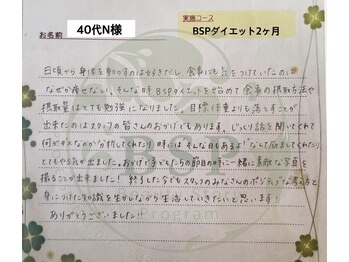 実施コース
お名前 40代N様 BSPダイエット2ヶ月
日頃から身体を動かすのは好きだし食事にも気をつけていたのに
なぜか痩せない。そんな時BSPダイエットを始めて食事の摂取方法や
摂取量はとても勉強になりました。目標体重よりも落とすことが
出来たのはスタッフの皆さんのおかげでもあります。じっくり話を聞いてくれて
何がダメなのか分析してくれたり 時にはそんな日もあるよ
とてもやる気が出ました。おかげで子どもたちの節目の時に一緒に素敵な写真を
撮ることが出来ました！終了した今でもスタッフのみなさんのポジティブな考え方と
身につけた知識を生かしながら生活していきたいと思います！
ありがとうございました!!
Program